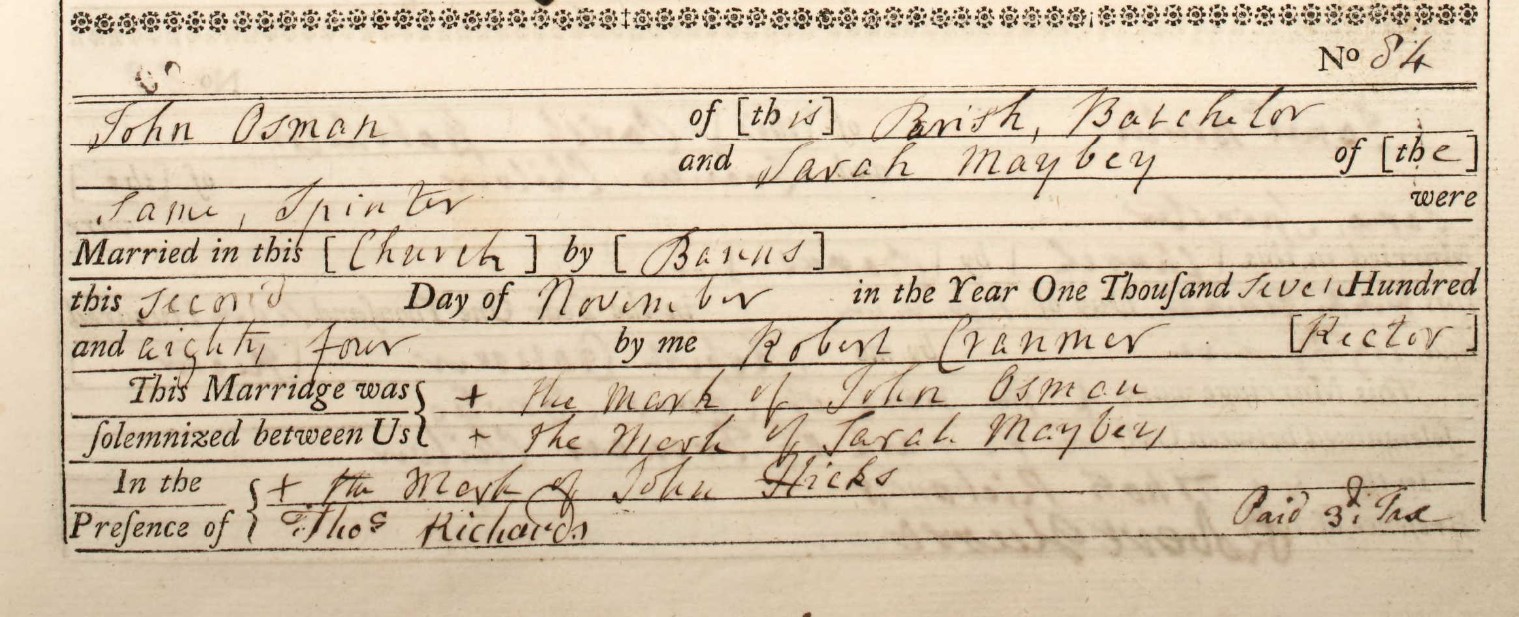 No 84
John Osman of [this] Parish, Batchelor
and Sarah Maybey of [the]
Same, Spinter were
Married in this [Church] by [Banns]
this second Day of November in the Year One Thouſand seven Hundred
and eighty four by me Robert Cranmer [Rector]
This Marridge was + the mark of John Osman
ſolemnized between Us + the Mark of Sarah Maybey
In the + the Mark of John Hicks
Preſence of Thos Richards Paid 3d. Tax